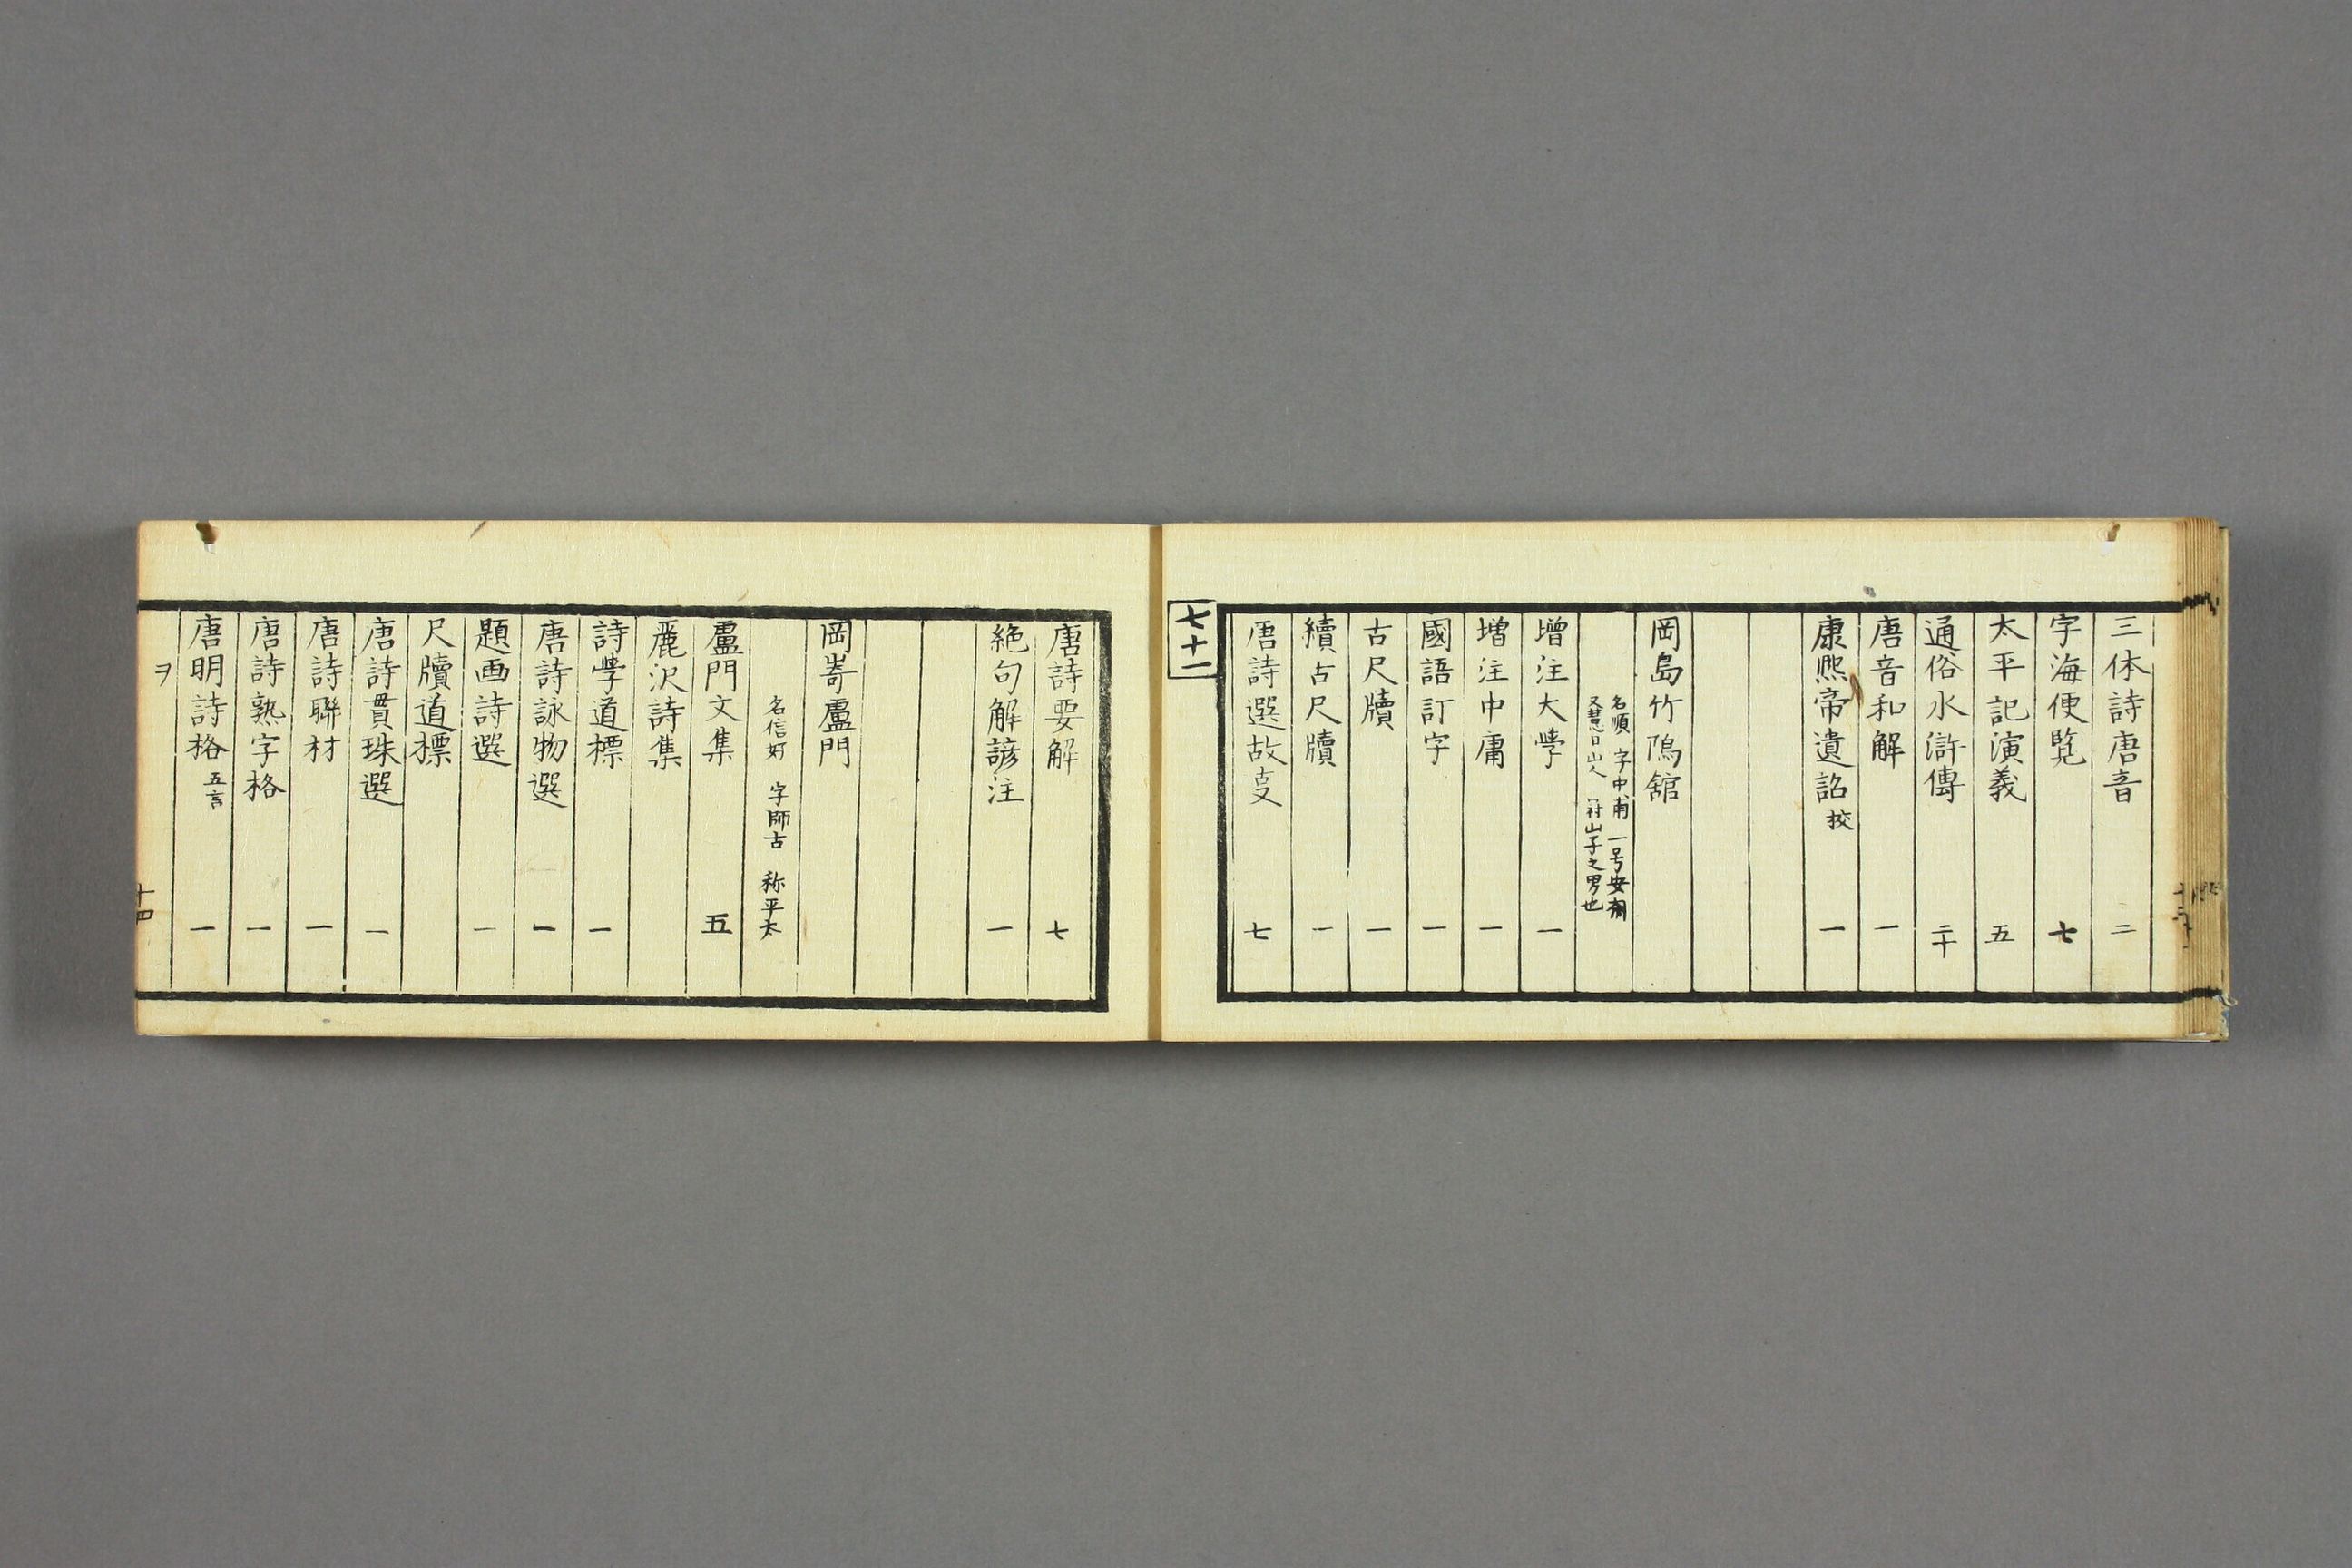 三体詩唐音 二
字海便覧 七
太平記演義 五
通俗水滸傳 二十
唐音和解 一
康熙帝遺詔 挍 一
岡島竹隝舘
名順 字中甫 一号安
又慧日山人 冠山子之男也
増注大學 一
増注中庸 一
國語訂字 一
古尺牘 一
續古尺牘 一
唐詩選故叓 七
七十一
唐詩要解 七
絶句解諺注 一
岡嵜盧門
名信好 字師古 称平太
盧門文集 五
麗沢詩集
詩學道標 一
唐詩詠物選 一
題画詩選 一
尺牘道標
唐詩貫珠選 一
唐詩聯材 一
唐詩熟字格 一
唐明詩格 五言 一
ヲ
十四